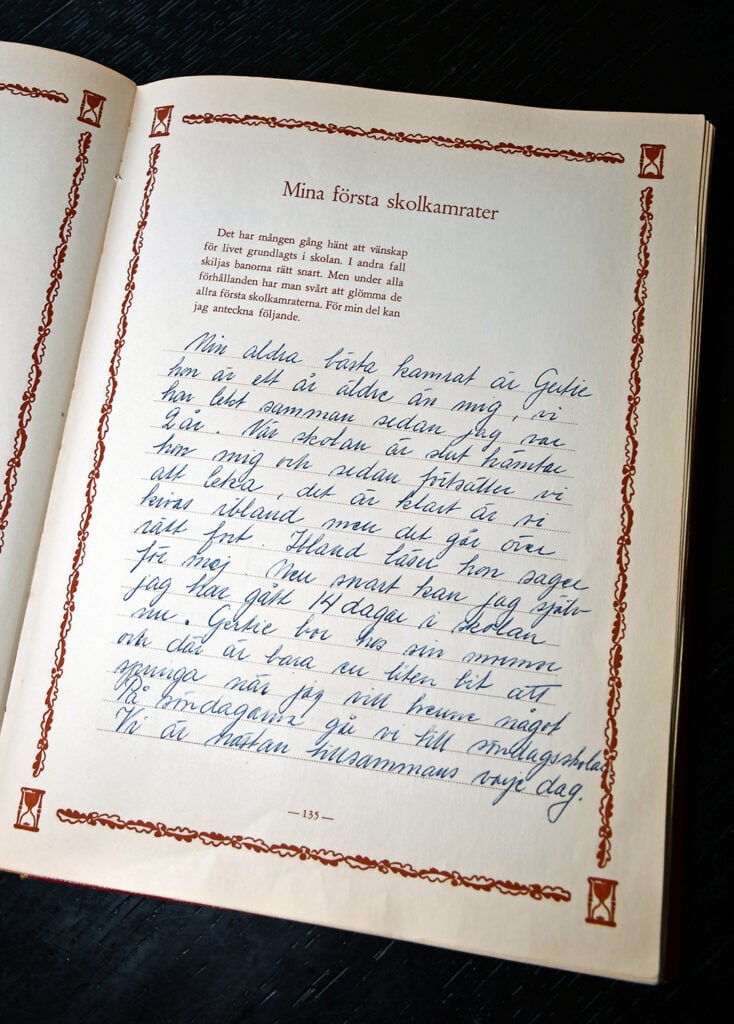 Mina första skolkamrater
Det har mången gång hänt att vänskap
för livet grundlagts i skolan. I andra fall
skiljas banorna rätt snart. Men under alla
förhållanden har man svårt att glömma de
allra första skolkamraterna. För min del kan
jag anteckna följande.
Min aldra bästa kamrat är Gertie
hon är ett år äldre än mig, vi
har lekt samman sedan jag var
2 år. När skolan är slut hämtar
hon mig och sedan fortsätter vi
att leka, det är klart är vi
kivas ibland men det går över
rätt fort. Ibland läser hon sagor
för mej. Men snart kan jag själv-
jag har gått 14 dagar i skolan
nu. Gertie bor hos sin mormor
och där är bara en liten bit att
springa när jag vill henne något
På söndagarna går vi till söndagsskolan
Vi är nästan tillsammans varje dag.
— 135 —